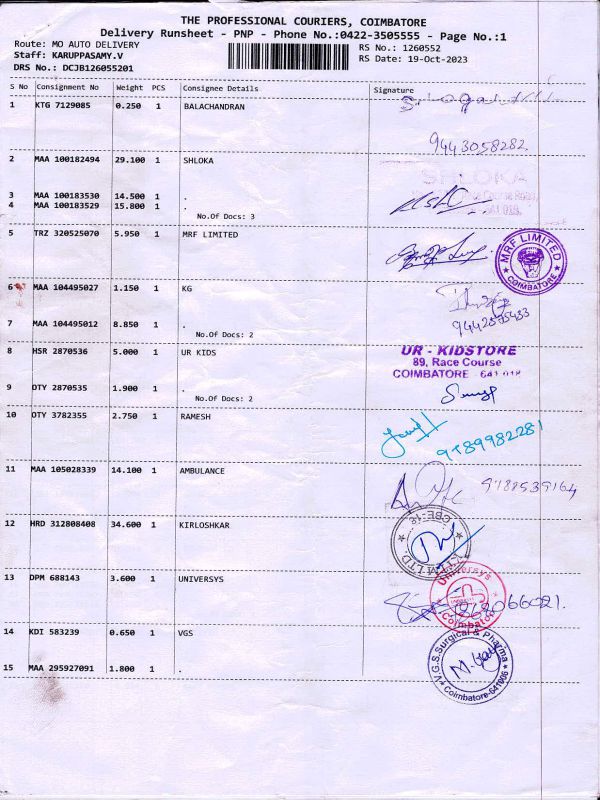 THE PROFESSIONAL COURIERS, COIMBATORE
Delivery Runsheet - PNP - Phone No.:0422-3505555 - Page No.:1
Route: MO AUTO DELIVERY
RS No.: 1260552
Staff: KARUPPASAMY.V
RS Date: 19-Oct-2023
DRS No.: DCJB126055201
S No Consignment No Weight PCS Consignee Details Signature
1 KTG 7129085 0.250 1 BALACHANDRAN
9443058282
2 MAA 100182494 29.100 1 SHLOKA
SHLOKA
3 MAA 100183530 14.500 1 .
4 MAA 100183529 15.800 1 .
No.Of Docs: 3
5 TRZ 320525070 5.950 1 MRF LIMITED
MRF LIMITED
COIMBATORE
6 MAA 104495027 1.150 1 KG
7 MAA 104495012 8.850 1 .
No.Of Docs: 2
8 HSR 2870536 5.000 1 UR KIDS
UR - KIDSTORE
89, Race Course
COIMBATORE - 641 018
9 DTY 2870535 1.900 1 .
No.Of Docs: 2
10 OTY 3782355 2.750 1 RAMESH
9789982281
11 MAA 105028339 14.100 1 AMBULANCE
9788539164
12 HRD 312808408 34.600 1 KIRLOSHKAR
CBE-18
13 DPM 688143 3.600 1 UNIVERSYS
Universys
Coimbatore
14 KDI 583239 0.650 1 VGS
V.G.S.Surgical & Pharma
Coimbatore-641006
15 MAA 295927091 1.800 1 .